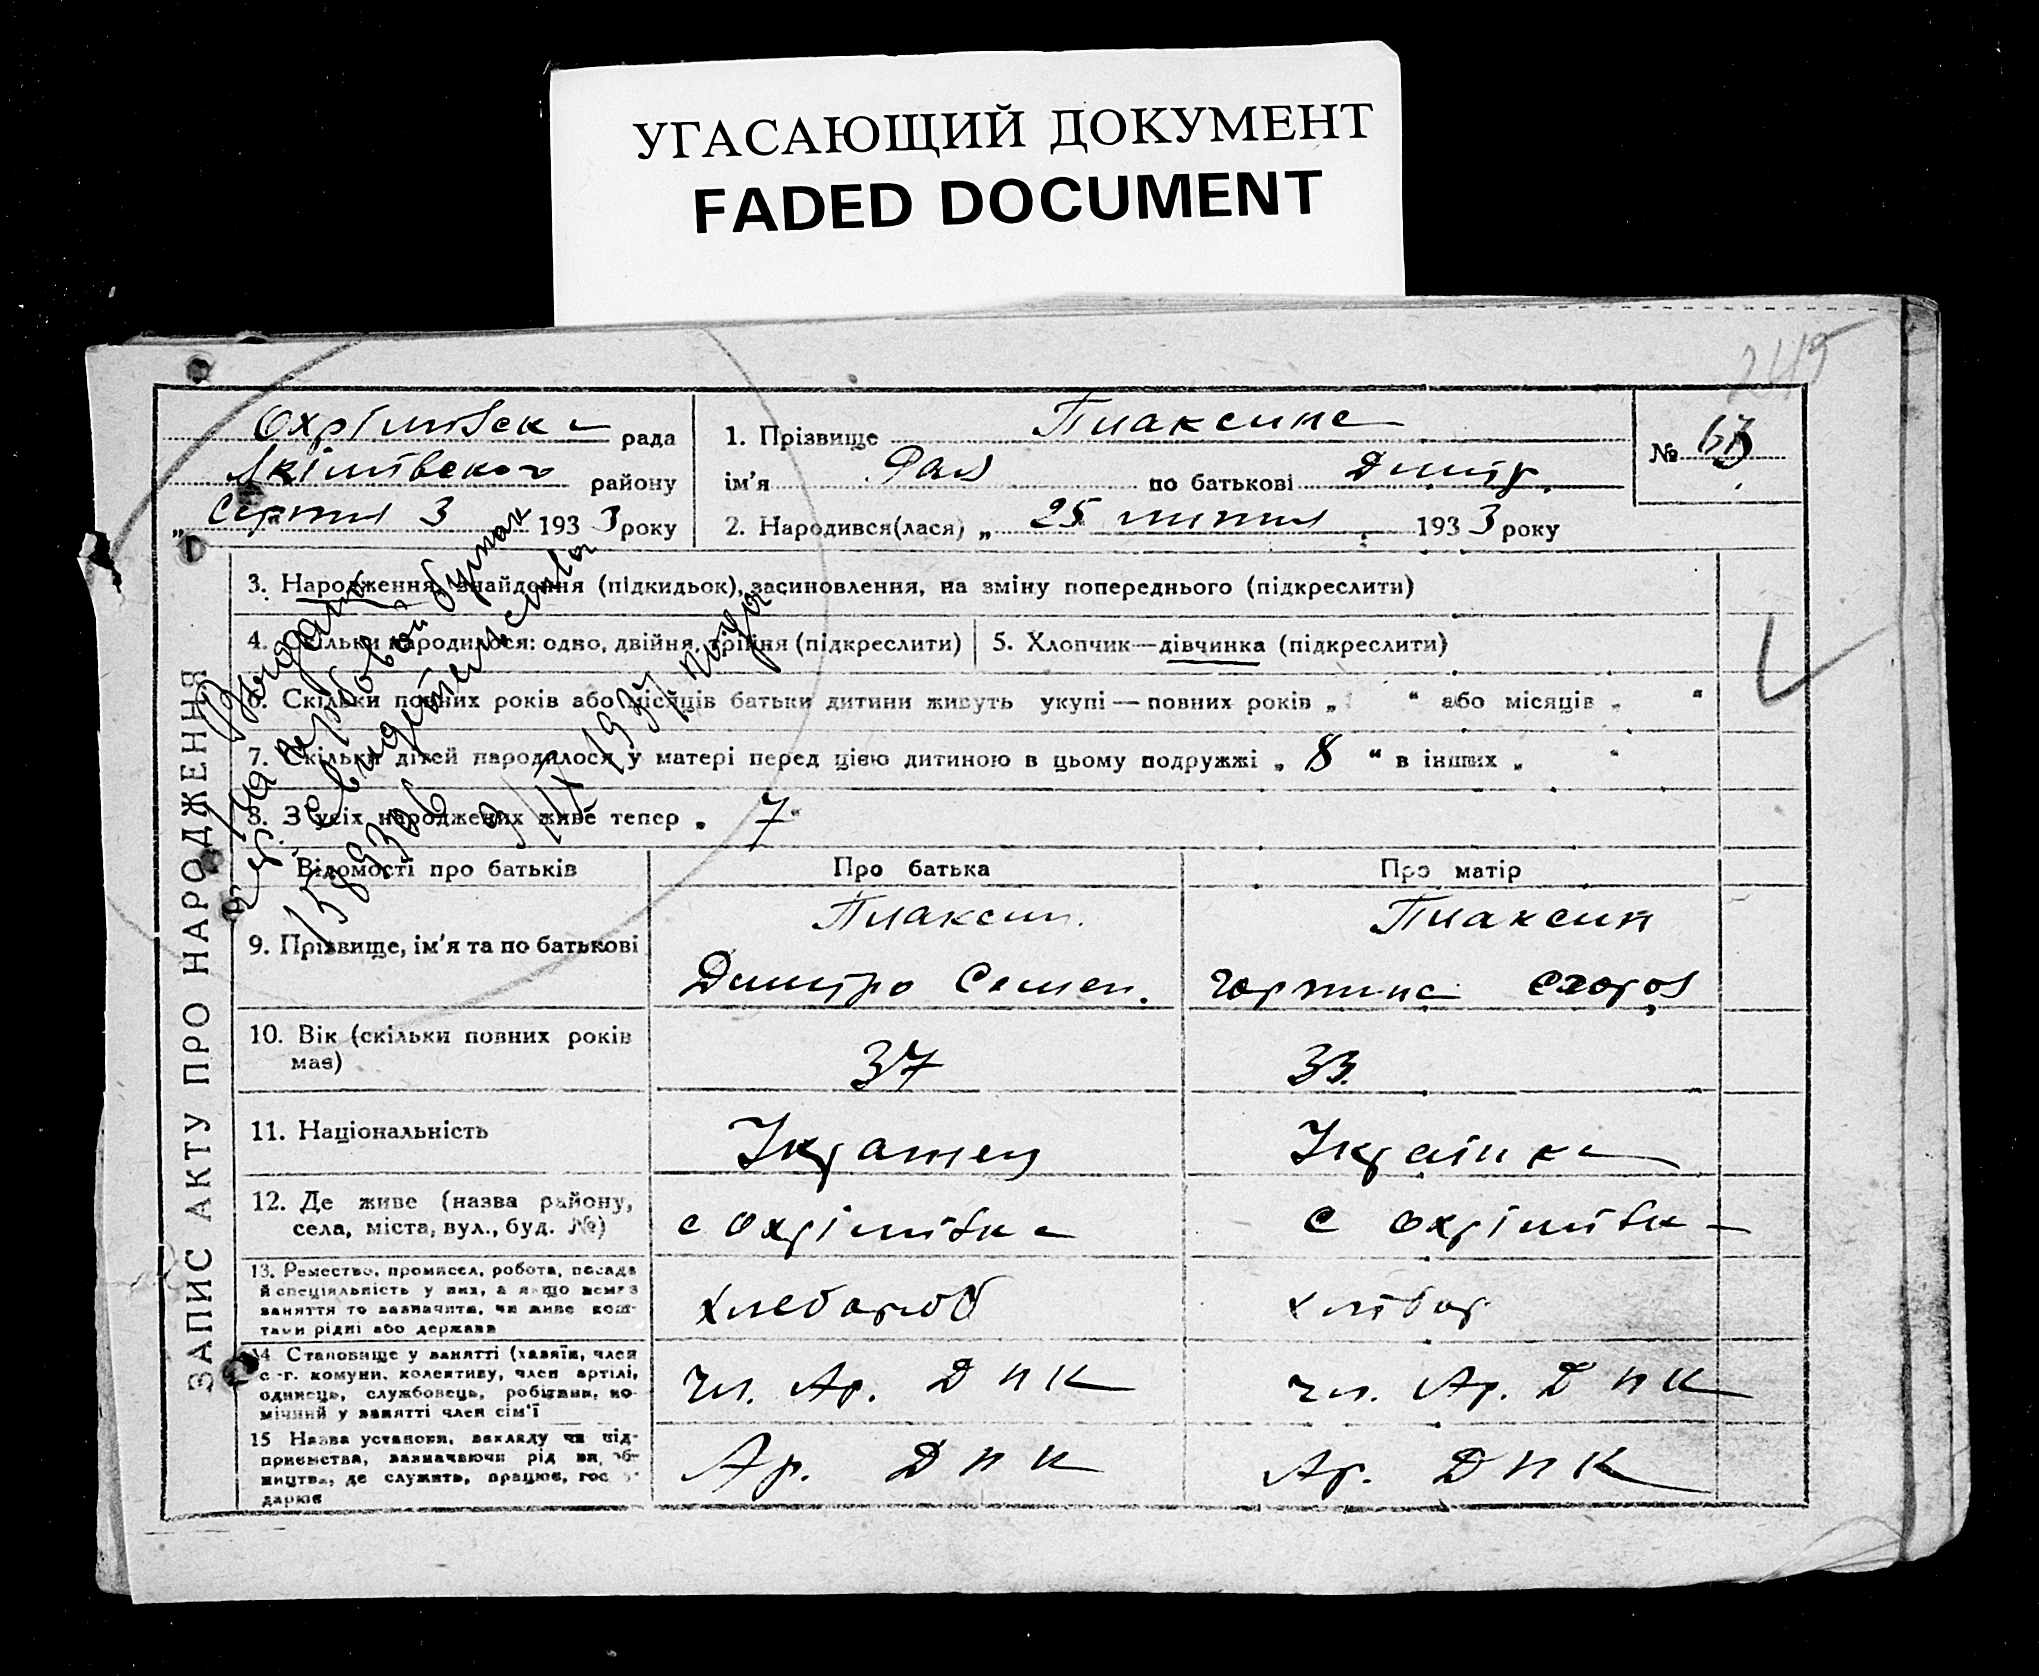 УГАСАЮЩИЙ ДОКУМЕНТ
FADED DOCUMENT
245
Охрімівська рада
Якімівського району
„ Серпня 3 1933 року
1. Прізвище Плаксина
ім'я Рая по батькові Дмитр.
2. Народився(лася) „ 25 липня 1933 року
№ 63
ЗАПИС АКТУ ПРО НАРОДЖЕННЯ
3. Народження, знайдення (підкидьок), засиновлення, на зміну попереднього (підкреслити)
4. Скільки народилося: одно, двійня, трійня (підкреслити)
5. Хлопчик—дівчинка (підкреслити)
6. Скільки повних років або місяців батьки дитини живуть укупі — повних років „ “ або місяців „ “
7. Скільки дітей народилося у матері перед цією дитиною в цьому подружжі „ 8 “ в інших „ “
8. З усіх народжених живе тепер „ 7 “
на гербовой бумаге
свидетельство
Відомості про батьків
Про батька
Про матір
9. Прізвище, ім'я та по батькові
Плаксин.
Дмитро Семен.
Плаксин
10. Вік (скільки повних років має)
37
33.
11. Національність
Українка
12. Де живе (назва району,
села, міста, вул., буд. №)
с Охрімівка
с Охрімівка
13. Ремество, промисел, робота, посада
й спеціяльність у них, а якщо нема
заняття то зазначити, чи живе кош-
тами рідні або держави
хлебороб
хлібор
14 Становище у занятті (хазяїн, член
с.-г. комуни, колективу, член артілі,
одинець, службовець, робітник, по-
мічний у занятті член сім'ї
чл. Ар. ДНК
чл. Ар. ДНК
15 Назва установи, закладу чи під-
приємства, зазначаючи рід виробництва, де служить, працює, господарює
Ар. ДНК
Ар. ДНК